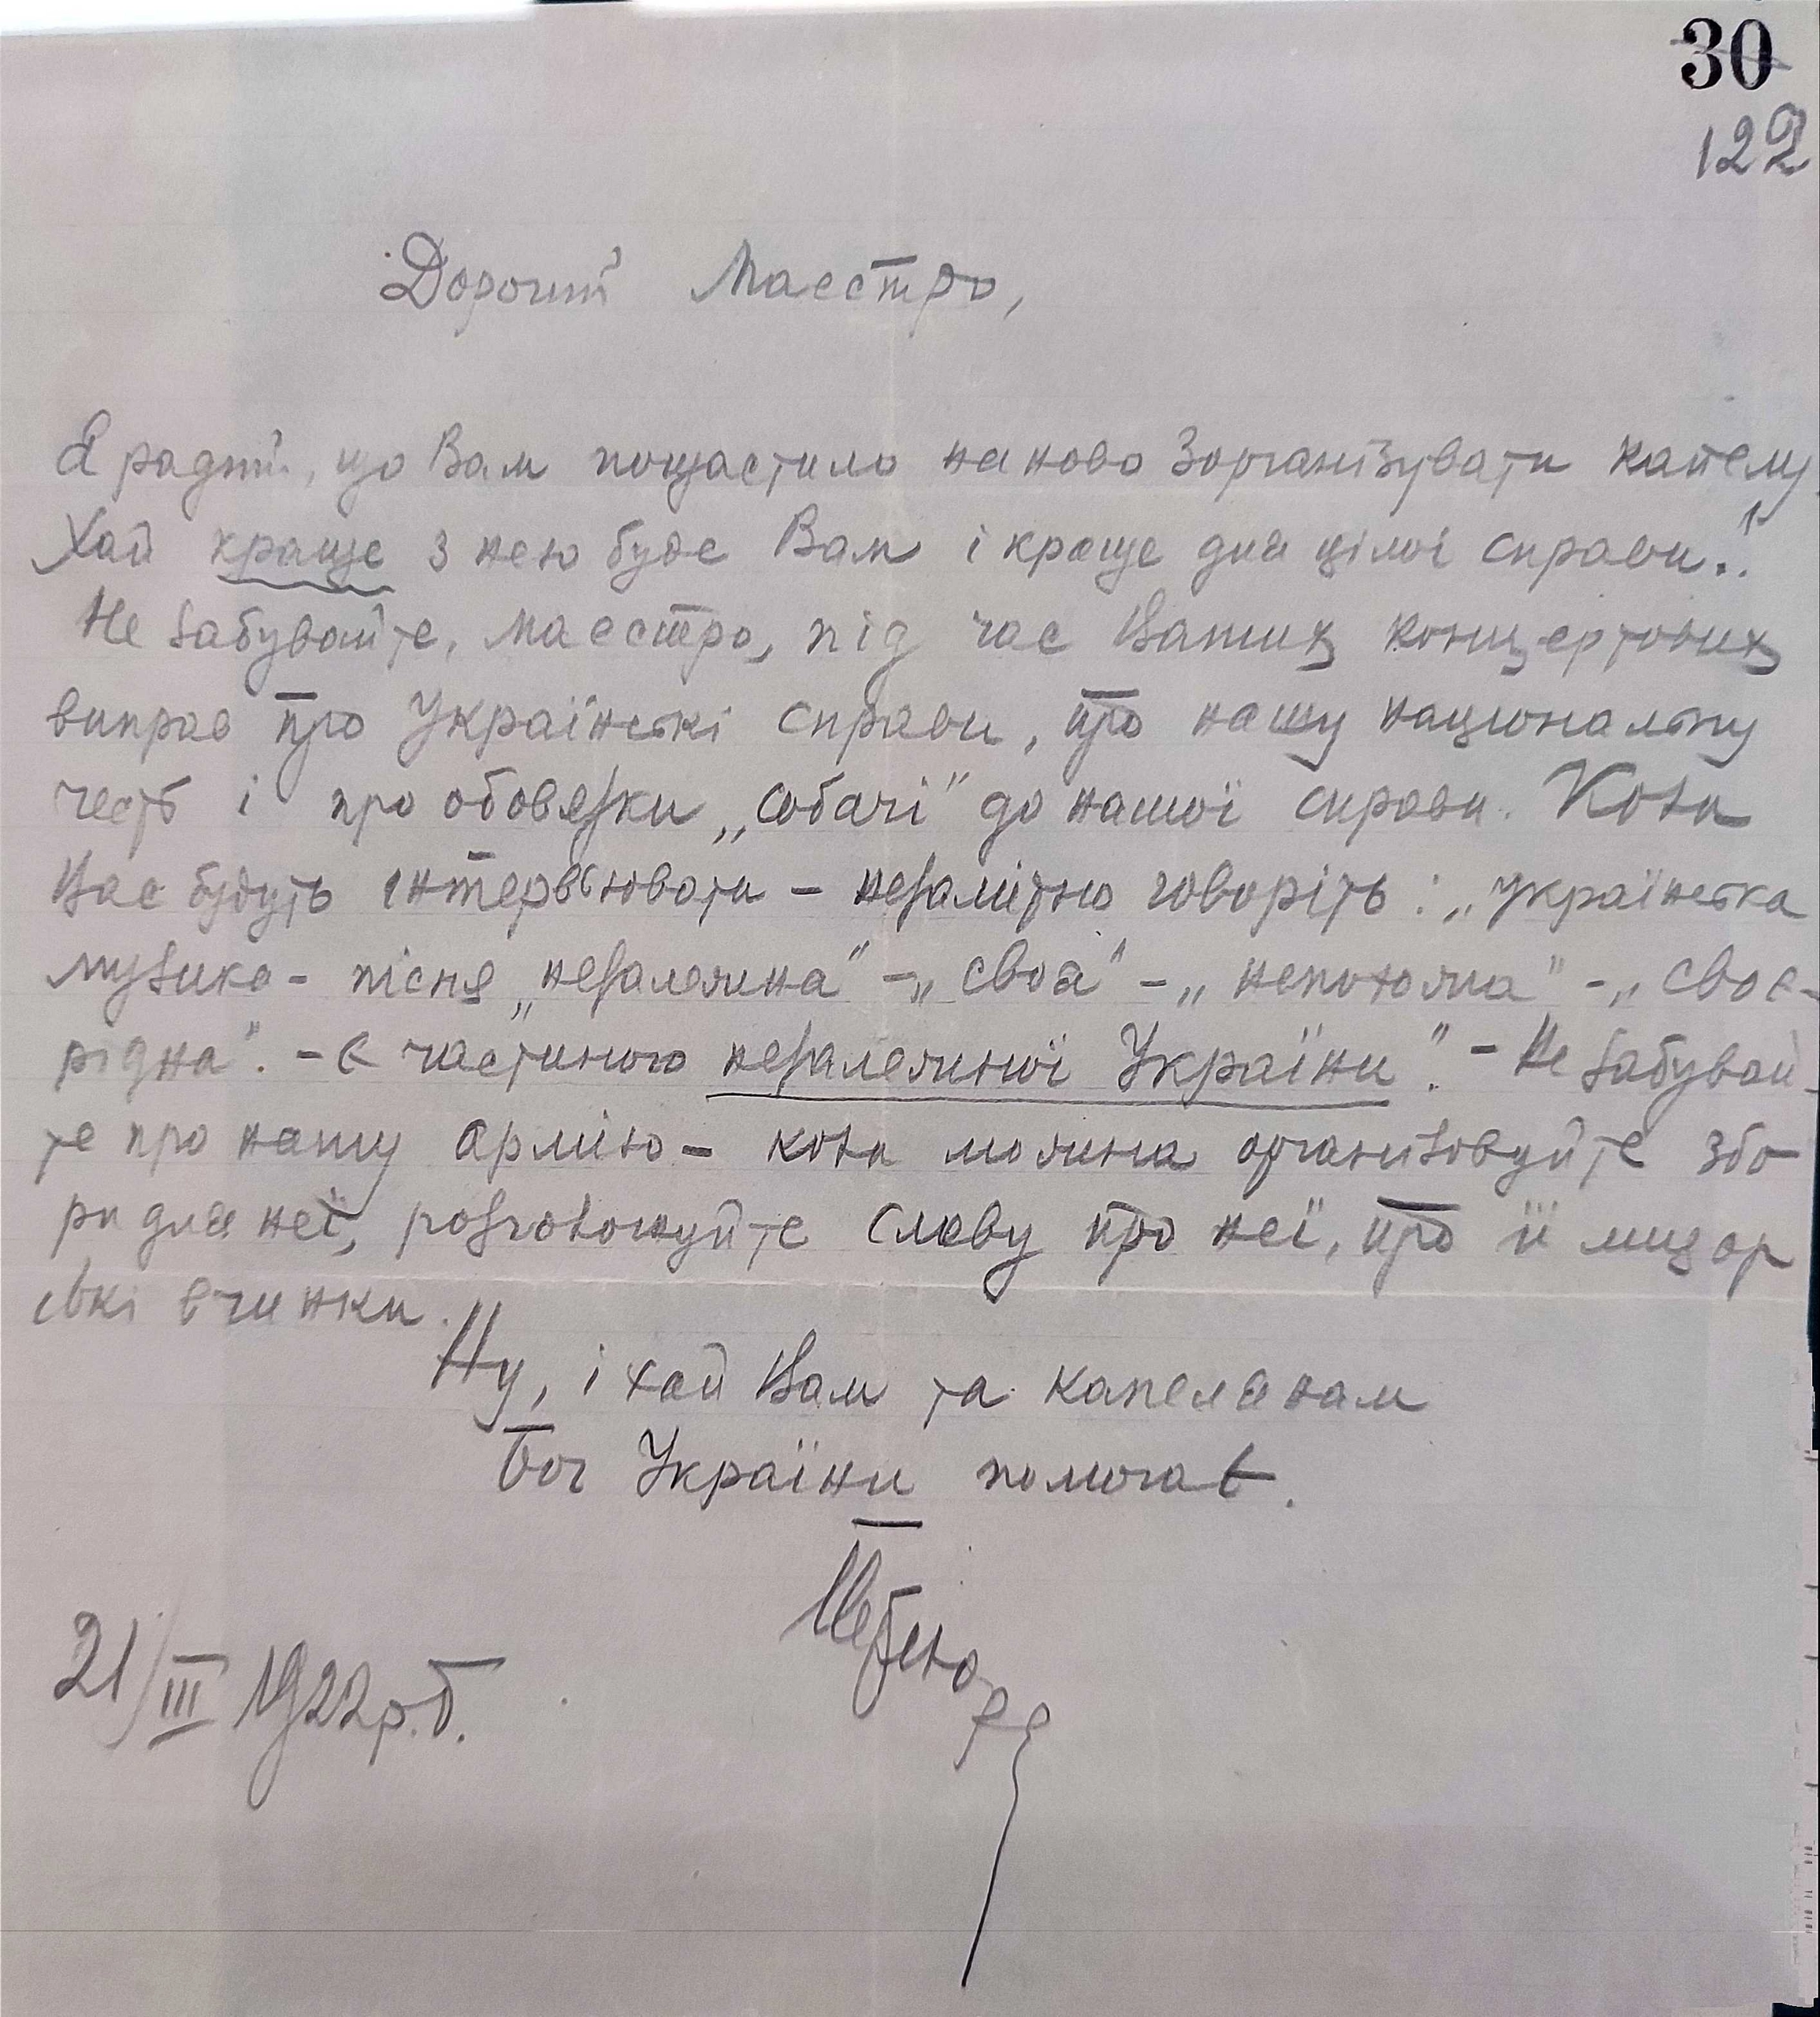 30
122
Дорогий Маестро,
Я радий, що Вам пощастило наново зорганізувати капелу.
Хай краще з нею буде Вам і краще для цілої справи.!
Не забувайте, маестро, під час Ваших концертових
виправ про Українські справи, про нашу національну
честь і про обовязки „собачі" до нашої справи. Коли
Вас будуть інтервʼювати – незамітно говоріть: „українська
музика - пісня „незалежна" – „своя" – „неположна" – „своє-
рідна". – є частиною незалежної України". – Не забувай-
те про нашу армію – коли можна організовуйте збо
ри для неї, розголошуйте славу про неї, про її лицар
ські вчинки.
Ну, і хай Вам та капелянам
Бог України помогає.
21/III 1922 р.Б.